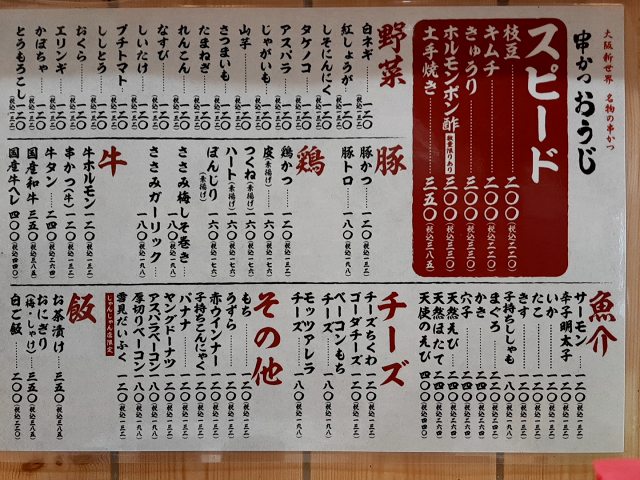 大阪新世界 名物の串かつ
串かつ おうじ
スピード
枝豆……二〇〇(税込二二〇)
キムチ……二〇〇(税込二二〇)
きゅうり……三〇〇(税込三三〇)
ホルモンポン酢 数量限りあり 三〇〇(税込三三〇)
土手焼き……三五〇(税込三八五)
野菜
白ネギ……一二〇(税込一三二)
紅しょうが……一二〇(税込一三二)
しそにんにく……一二〇(税込一三二)
タケノコ……一二〇(税込一三二)
アスパラ……一二〇(税込一三二)
じゃがいも……一二〇(税込一三二)
山芋……一二〇(税込一三二)
さつまいも……一二〇(税込一三二)
たまねぎ……一二〇(税込一三二)
れんこん……一二〇(税込一三二)
なすび……一二〇(税込一三二)
しいたけ……一二〇(税込一三二)
プチトマト……一二〇(税込一三二)
ししとう……一二〇(税込一三二)
おくら……一二〇(税込一三二)
エリンギ……一二〇(税込一三二)
かぼちゃ……一二〇(税込一三二)
とうもろこし……一二〇(税込一三二)
豚
豚かつ……一二〇(税込一三二)
豚トロ……一八〇(税込一九八)
鶏
鶏かつ……一二〇(税込一三二)
皮(素揚げ)……一六〇(税込一七六)
つくね(素揚げ)……一六〇(税込一七六)
ハート(素揚げ)……一六〇(税込一七六)
ぼんじり(素揚げ)……一六〇(税込一七六)
ささみ梅しそ巻き……一八〇(税込一九八)
ささみガーリック……一八〇(税込一九八)
牛
牛ホルモン……一二〇(税込一三二)
串かつ(牛)……一二〇(税込一三二)
牛タン……二四〇(税込二六四)
国産和牛……三五〇(税込三八五)
国産牛ヘレ……四〇〇(税込四四〇)
魚介
サーモン……一二〇(税込一三二)
辛子明太子……一二〇(税込一三二)
いか……一二〇(税込一三二)
たこ……一二〇(税込一三二)
きす……一二〇(税込一三二)
子持ちししゃも……一八〇(税込一九八)
まぐろ……二二〇(税込二四二)
かき……二四〇(税込二六四)
穴子……二四〇(税込二六四)
天然えび……二四〇(税込二六四)
天然ほたて……二四〇(税込二六四)
天使のえび……四〇〇(税込四四〇)
チーズ
チーズちくわ……一二〇(税込一三二)
ゴーダチーズ……一二〇(税込一三二)
ベーコンもち
チーズ……一八〇(税込一九八)
モッツァレラ
チーズ……一八〇(税込一九八)
その他
もち……一二〇(税込一三二)
うずら……一二〇(税込一三二)
赤ウインナー……一二〇(税込一三二)
子持ちこんにゃく……一二〇(税込一三二)
バナナ……一二〇(税込一三二)
ヤングドーナツ……一二〇(税込一三二)
アスパラベーコン……一八〇(税込一九八)
厚切りベーコン……一八〇(税込一九八)
雪見だいふく……一二〇(税込一三二)
じゃんじゃん店限定
飯
お茶漬け……三五〇(税込三八五)
(梅・しゃけ)
おにぎり……三五〇(税込三八五)
白ご飯……二〇〇(税込二二〇)